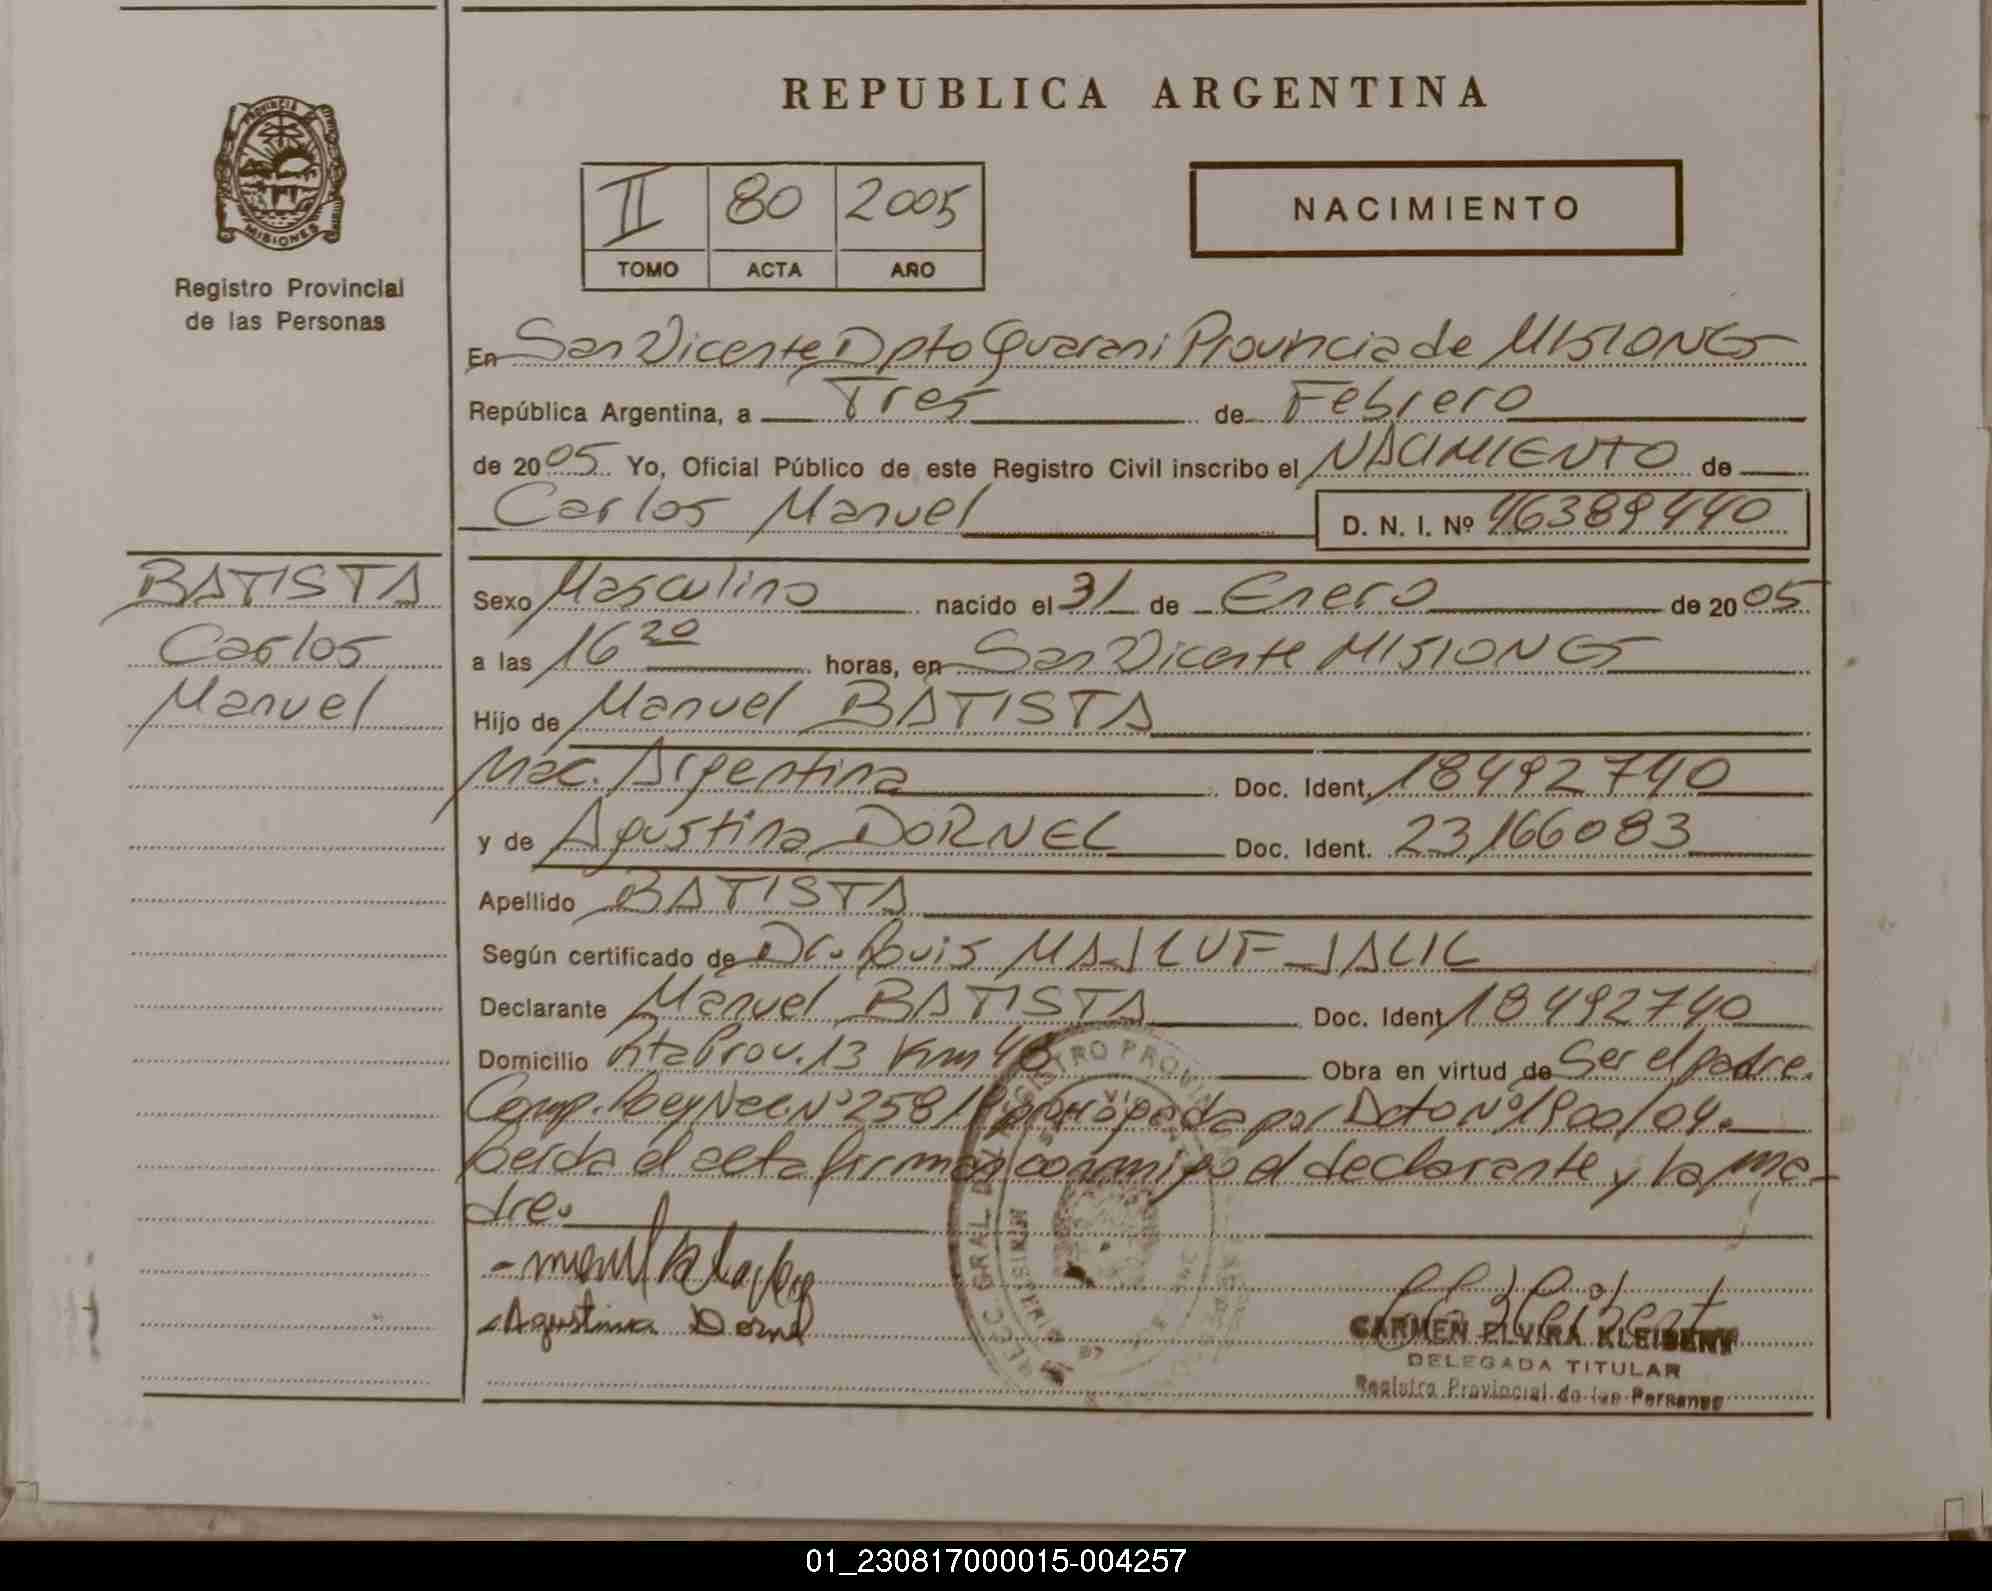 REPUBLICA ARGENTINA
PROVINCIA DE
MISIONES
Registro Provincial
de las Personas
II 80 2005
TOMO ACTA AÑO
NACIMIENTO
En San Vicente Dpto Guarani Provincia de MISIONES
República Argentina, a Tres de Febrero
de 2005 Yo, Oficial Público de este Registro Civil inscribo el NACIMIENTO de
Carlos Manuel D. N. I. Nº 46389440
BATISTA
Carlos
Manuel
Sexo Masculino nacido el 31 de Enero de 2005
a las 16 20 horas, en San Vicente MISIONES
Hijo de Manuel BATISTA
Nac. Argentina Doc. Ident. 18492740
y de Agustina DORNEL Doc. Ident. 23166083
Apellido BATISTA
Según certificado de Dr. Luis MAJLUF JALIL
Declarante Manuel BATISTA Doc. Ident. 18492740
Domicilio Rta Prov. 13 Km 48 Obra en virtud de Ser el padre.
Comp. Ley Nac. Nº 258 prorrogada por Dcto Nº 1900/04.
Leida el acta firman conmigo el declarante y la ma-
dre.
Agustina Dornel
CARMEN ELVIRA KLEIBERT
DELEGADA TITULAR
Registro Provincial de las Personas
01_230817000015-004257